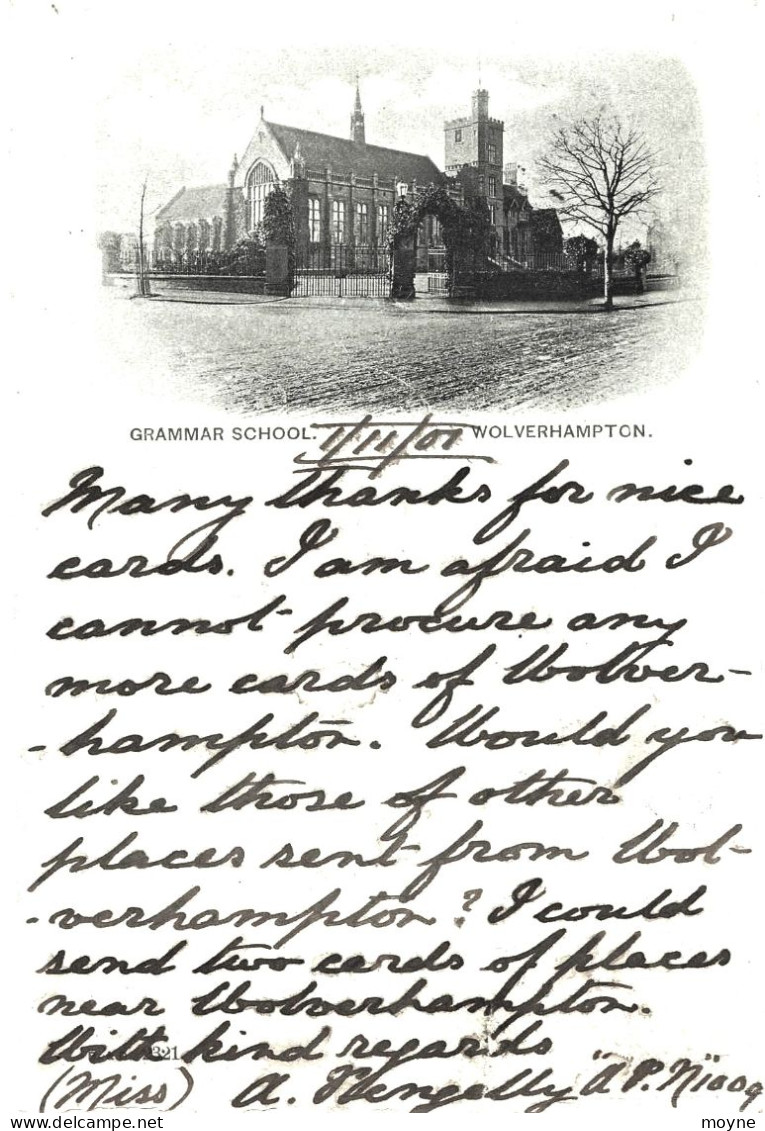 GRAMMAR SCHOOL. 1/11/01 WOLVERHAMPTON.
Many thanks for nice
cards. I am afraid I
cannot procure any
more cards of Wolver-
-hampton. Would you
like those of other
places sent from Wol-
-verhampton? I could
send two cards of places
near Wolverhampton.
With kind regards
(Miss) A.
delcampe.net
moyne